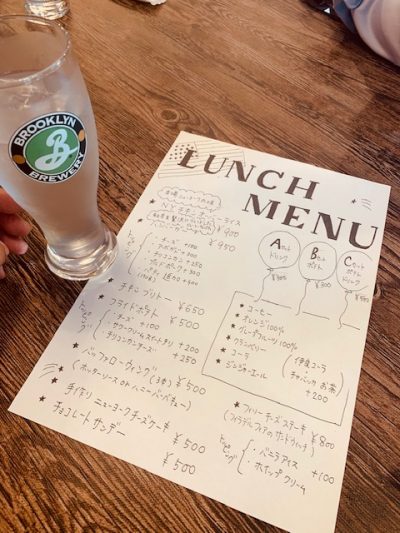 BROOKLYN
B
BREWERY
LUNCH
MENU
NYチキンオーバーライス
¥900
ハンバーガー ¥950
トッピング
・チーズ +100
・アボカド +200
・チリコンカン +250
・パティ追加 +400
★チキンブリトー ¥650
★フライドポテト ¥500
トッピング
・チーズ +100
・サワークリームスイートチリ +200
・チリコンカンチーズ +250
★バッファローウィング(3本) ¥500
(ホッターソース OR ハニーバーベキュー)
★手作り ニューヨークチーズケーキ ¥500
★チョコレートサンデー ¥500
トッピング
・バニラアイス
・ホイップクリーム
+100
Aセット
ドリンク
Bセット
ポテト
Cセット
ポテト
ドリンク
★コーヒー
★オレンジ100%
★グレープフルーツ100%
★クランベリー
★コーラ
★ジンジャーエール
(伊良コーラ
チャバッカ お茶
+200)
★フィリーチーズステーキ ¥800
(フィラデルフィアのホットサンドウィッチ)